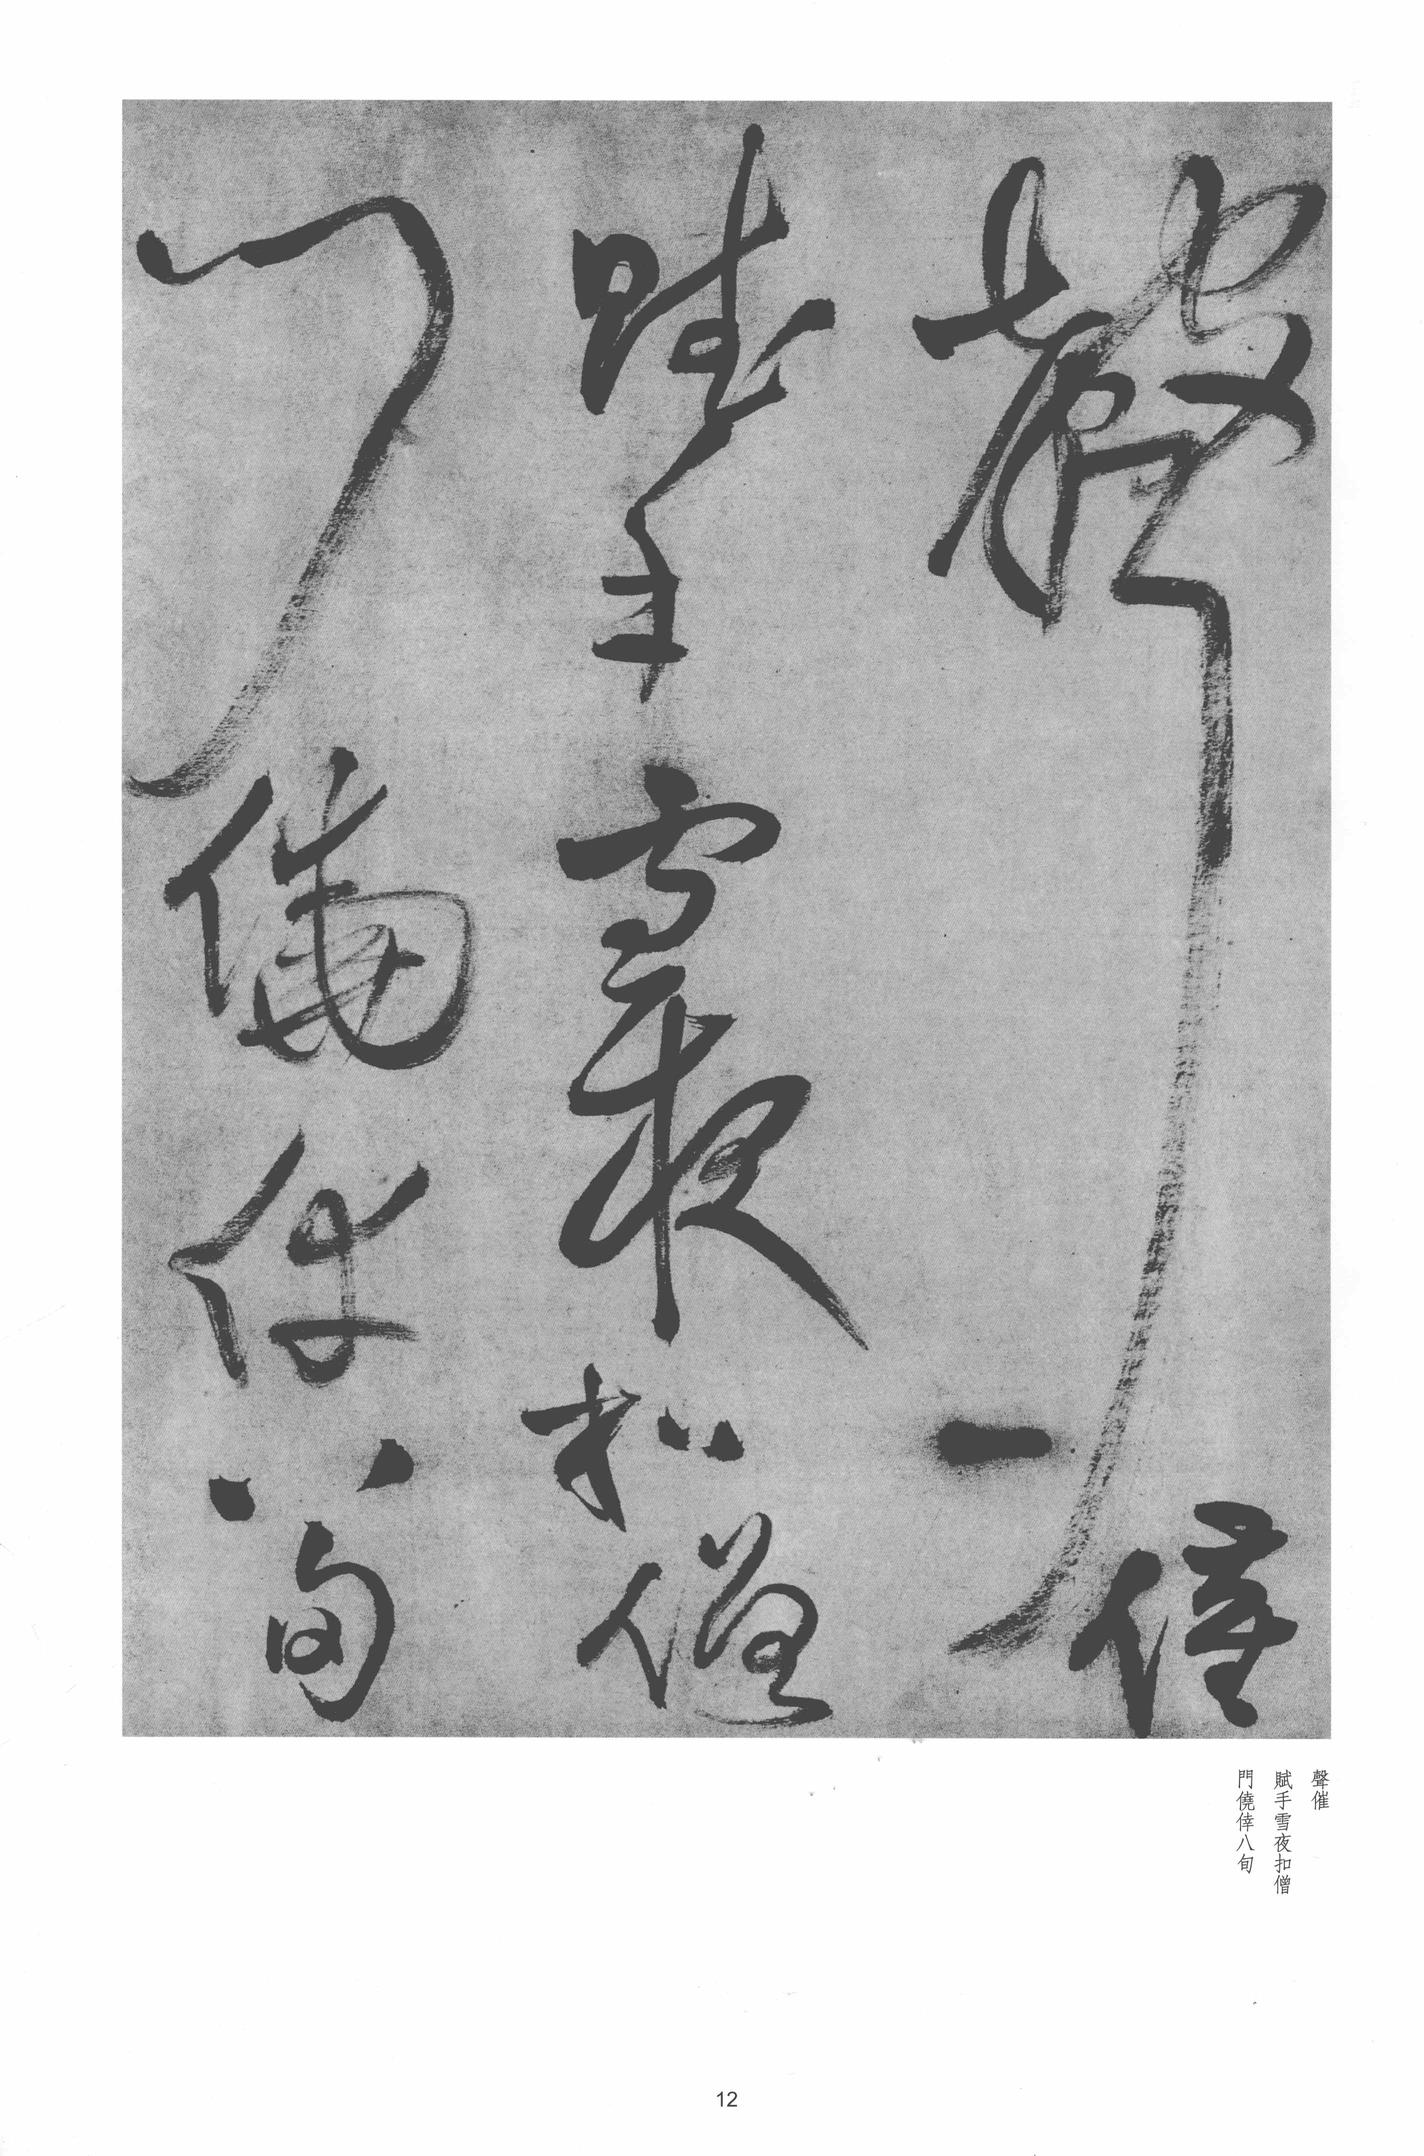 聲催
賦手雪夜扣僧
門僥倖八旬
聲催
賦手雪夜扣僧
門僥倖八旬
12